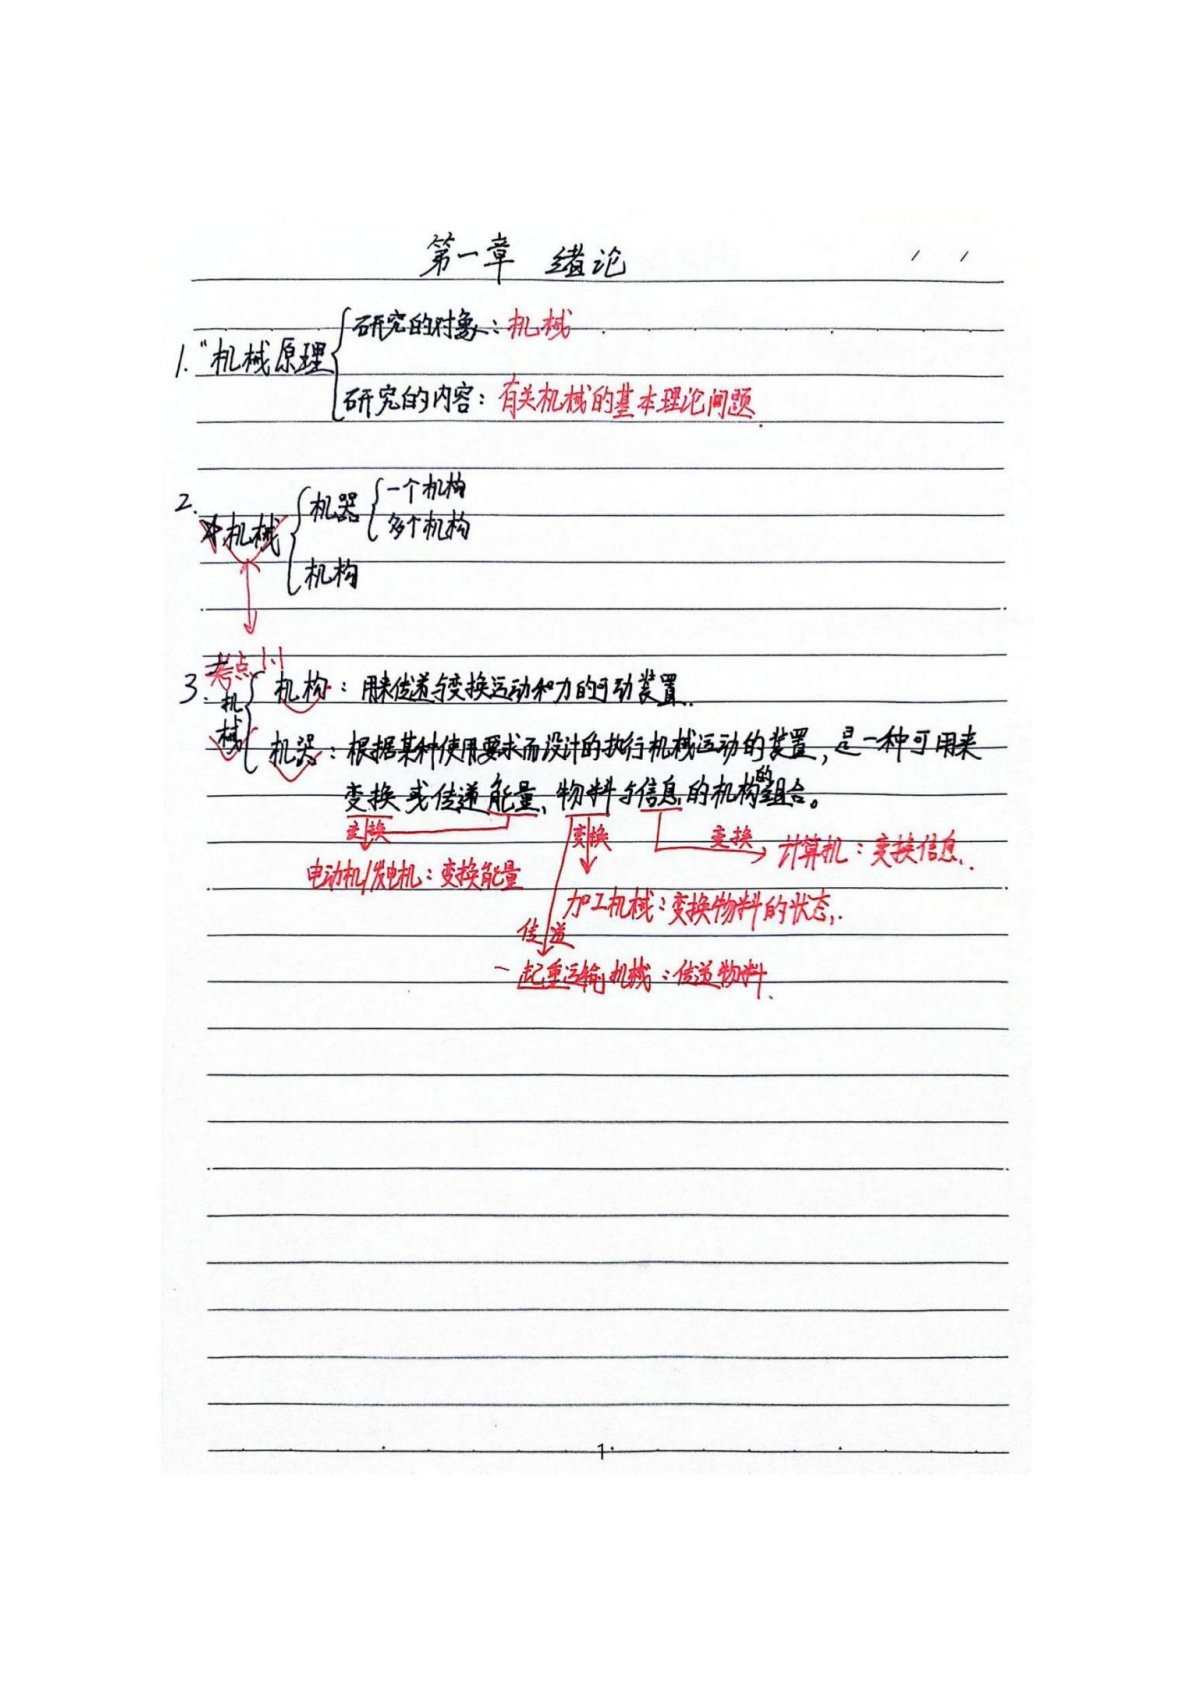 第一章 绪论
1. "机械原理
研究的对象：机械
研究的内容：有关机械的基本理论问题
2.
☆机械
机器
一个机构
多个机构
机构
考点1.1
3.
机械
机构：用来传递与变换运动和力的可动装置
机器：根据某种使用要求而设计的执行机械运动的装置，是一种可用来
变换或传递能量、物料与信息的机构的组合。
变换
变换
变换
计算机：变换信息
电动机/发电机：变换能量
加工机械：变换物料的状态
传递
起重运输机械：传递物料
1